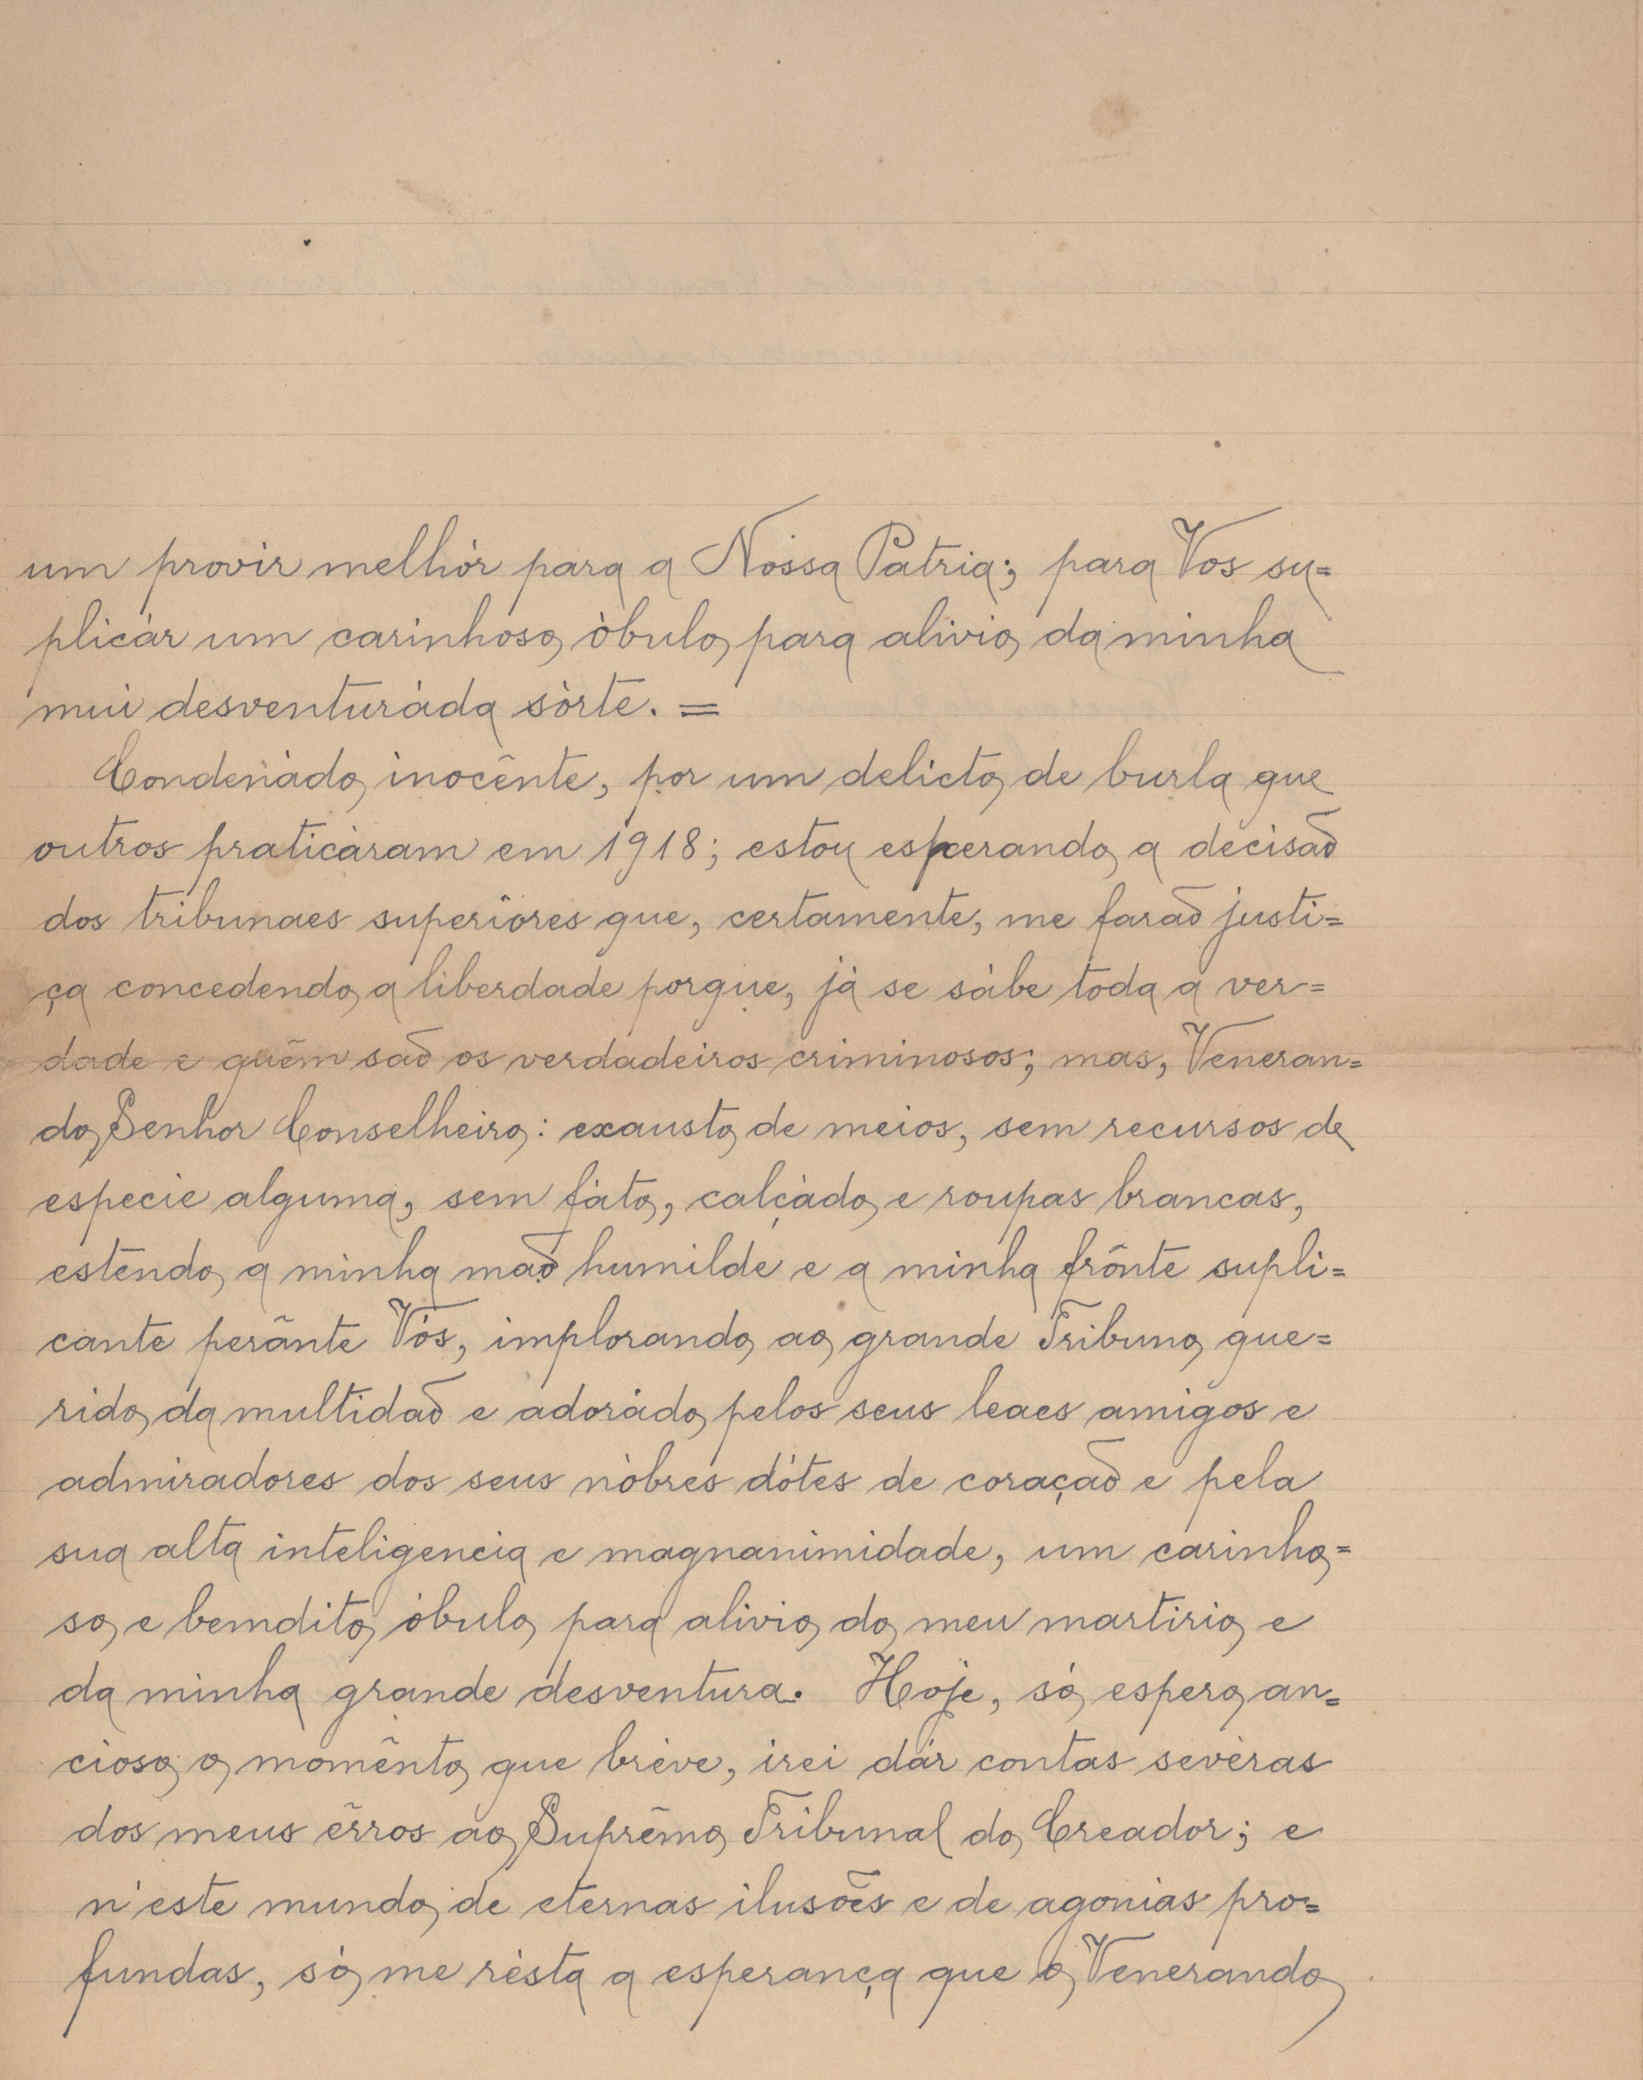 um provir melhór para a Nossa Patria; para Vos su=
plicár um carinhoso òbulo para alivio da minha
mui desventuráda sòrte. =
Condenádo inocênte, por um delicto de burla que
outros praticáram em 1918; estou esperando a decisaõ
dos tribunaes superiôres que, certamente, me faraõ justi=
ça concedendo a liberdade porque, já se sàbe toda a ver=
dade e quêm saõ os verdadeiros criminosos; mas, Veneran=
do Senhor Conselheiro: exausto de meios, sem recursos de
especie alguma, sem fáto, calçádo e roupas brancas,
estendo a minha maõ humilde e a minha frônte supli=
cante perânte Vós, implorando ao grande Tribuno que=
rido da multidaõ e adorádo pelos seus leaes amigos e
admiradores dos seus nòbres dótes de coraçaõ e pela
sua alta inteligencia e magnanimidade, um carinho=
so e bemdito óbulo para alivio do meu martirio e
da minha grande desventura. Hoje, só espero an=
cioso o momênto que bréve, irei dár contas sevéras
dos meus êrros ao Suprêmo Tribunal do Creador; e
n'este mundo de eternas ilusões e de agonias pro=
fundas, só me résta a esperança que o Venerando